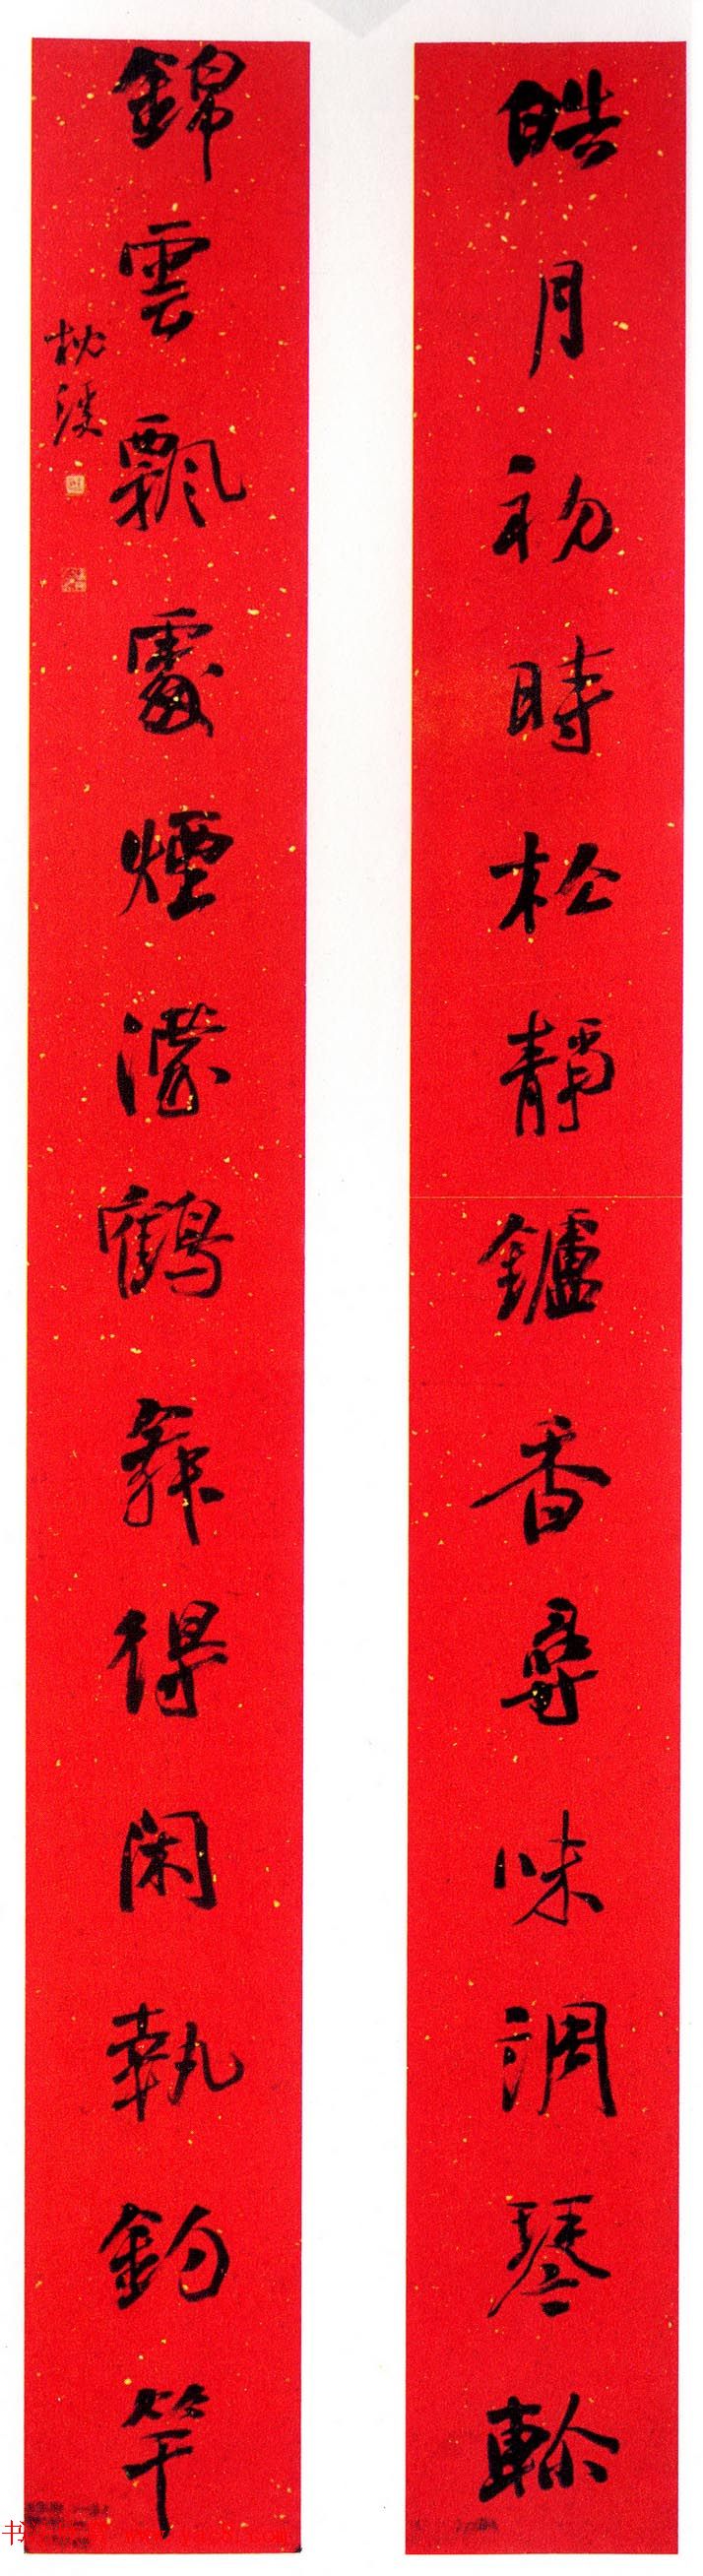 皓月初時松靜鑪香尋味調琴軫
錦雲飄處煙濃鶴舞得閑執釣竿
书